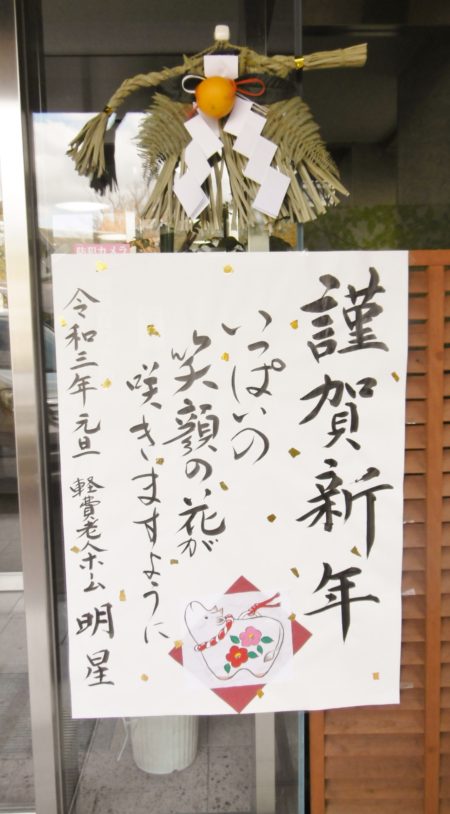 謹賀新年
いっぱいの
笑顔の花が
咲きますように
令和三年元旦 軽費老人ホーム 明星
防犯カメラ